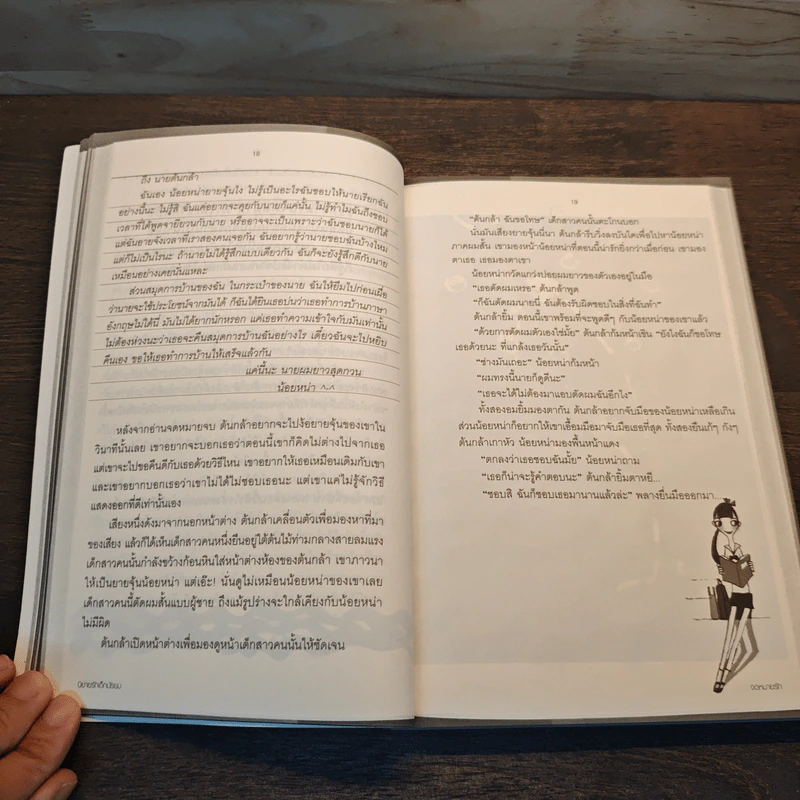 18
ถึง นายต้นกล้า
ฉันเอง น้อยหน่ายายจุ้นไง ไม่รู้เป็นอะไรฉันชอบให้นายเรียกฉัน
อย่างนี้นะ ไม่รู้สิ ฉันแค่อยากจะคุยกับนายก็แค่นั้น ไม่รู้ทำไมฉันถึงชอบ
เวลาที่ได้พูดจายียวนกับนาย หรืออาจจะเป็นเพราะว่าฉันชอบนายก็ได้
แต่ฉันอายจังเวลาที่เราสองคนเจอกัน ฉันอยากรู้ว่านายชอบฉันบ้างไหม
แต่ก็ไม่เป็นไรนะ ถ้านายไม่ได้รู้สึกแบบเดียวกัน ฉันก็จะยังรู้สึกดีกับนาย
เหมือนอย่างเคยนั่นแหละ
ส่วนสมุดการบ้านของฉัน ในกระเป๋าของนาย ฉันให้ยืมไปก่อนเผื่อ
ว่านายจะใช้ประโยชน์จากมันได้ ก็ฉันได้ยินเธอบ่นว่าเธอทำการบ้านภาษา
อังกฤษไม่ได้นี่ มันไม่ได้ยากนักหรอก แค่เธอทำความเข้าใจกับมันเท่านั้น
ไม่ต้องห่วงนะว่าเธอจะคืนสมุดการบ้านฉันอย่างไร เดี๋ยวฉันจะไปหยิบ
คืนเอง ขอให้เธอทำการบ้านให้เสร็จแล้วกัน
แค่นี้นะ นายผมยาวสุดกวน
น้อยหน่า ^-^
หลังจากอ่านจดหมายจบ ต้นกล้าอยากจะไปง้อยายจุ้นของเขาใน
วินาทีนั้นเลย เขาอยากจะบอกเธอว่าตอนนี้เขาก็คิดไม่ต่างไปจากเธอ
แต่เขาจะไปขอคืนดีกับเธอด้วยวิธีไหน เขาอยากให้เธอเหมือนเดิมกับเขา
และเขาอยากบอกเธอว่าเขาไม่ได้ไม่ชอบเธอนะ แต่เขาแค่ไม่รู้จักวิธี
แสดงออกที่ดีเท่านั้นเอง
เสียงหนึ่งดังมาจากนอกหน้าต่าง ต้นกล้าเคลื่อนตัวเพื่อมองหาที่มา
ของเสียง แล้วก็ได้เห็นเด็กสาวคนหนึ่งยืนอยู่ใต้ต้นไม้ท่ามกลางสายลมแรง
เด็กสาวคนนั้นกำลังขว้างก้อนหินใส่หน้าต่างห้องของต้นกล้า เขาภาวนา
ให้เป็นยายจุ้นน้อยหน่า แต่เอ๊ะ! นั่นดูไม่เหมือนน้อยหน่าของเขาเลย
เด็กสาวคนนี้ตัดผมสั้นแบบผู้ชาย ถึงแม้รูปร่างจะใกล้เคียงกับน้อยหน่า
ไม่มีผิด
ต้นกล้าเปิดหน้าต่างเพื่อมองดูหน้าเด็กสาวคนนั้นให้ชัดเจน
นิยายรักเด็กมัธยม
19
"ต้นกล้า ฉันขอโทษ" เด็กสาวคนนั้นตะโกนบอก
นั่นมันเสียงยายจุ้นนี่นา ต้นกล้ารีบวิ่งลงบันไดเพื่อไปหาน้อยหน่า
ภาคผมสั้น เขามองหน้าน้อยหน่าที่ตอนนี้น่ารักยิ่งกว่าเมื่อก่อน เขามอง
ตาเธอ เธอมองตาเขา
น้อยหน่ากวัดแกว่งปอยผมยาวของตัวเองอยู่ในมือ
"เธอตัดผมเหรอ" ต้นกล้าพูด
"ก็ฉันตัดผมนายนี่ ฉันต้องรับผิดชอบในสิ่งที่ฉันทำ"
ต้นกล้ายิ้ม ตอนนี้เขาพร้อมที่จะพูดดีๆ กับน้อยหน่าของเขาแล้ว
"ด้วยการตัดผมตัวเองใช่มั้ย" ต้นกล้าก้มหน้าเขิน "ยังไงฉันก็ขอโทษ
เธอด้วยนะ ที่แกล้งเธอวันนั้น"
"ช่างมันเถอะ" น้อยหน่าก้มหน้า
"ผมทรงนี้นายก็ดูดีนะ"
"เธอจะได้ไม่ต้องมาแอบตัดผมฉันอีกไง"
ทั้งสองอมยิ้มมองตากัน ต้นกล้าอยากจับมือของน้อยหน่าเหลือเกิน
ส่วนน้อยหน่าก็อยากให้เขาเอื้อมมือมาจับมือเธอที่สุด ทั้งสองยืนเก้ๆ กังๆ
ต้นกล้าเกาหัว น้อยหน่ามองพื้นหน้าแดง
"ตกลงว่าเธอชอบฉันมั้ย" น้อยหน่าถาม
"เธอก็น่าจะรู้คำตอบนะ" ต้นกล้ายิ้มตาหยี...
"ชอบสิ ฉันก็ชอบเธอมานานแล้วล่ะ" พลางยื่นมือออกมา...
จดหมายรัก